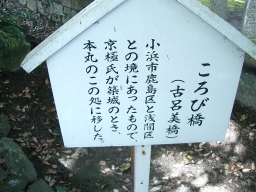 ころび橋
(古呂美橋)
小浜市鹿島区と浅間区
との境にあったもので、
京極氏が築城のとき、
本丸のこの処に移した。